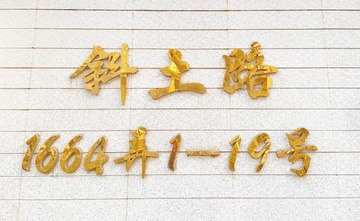 斜土路
1664弄1-19号